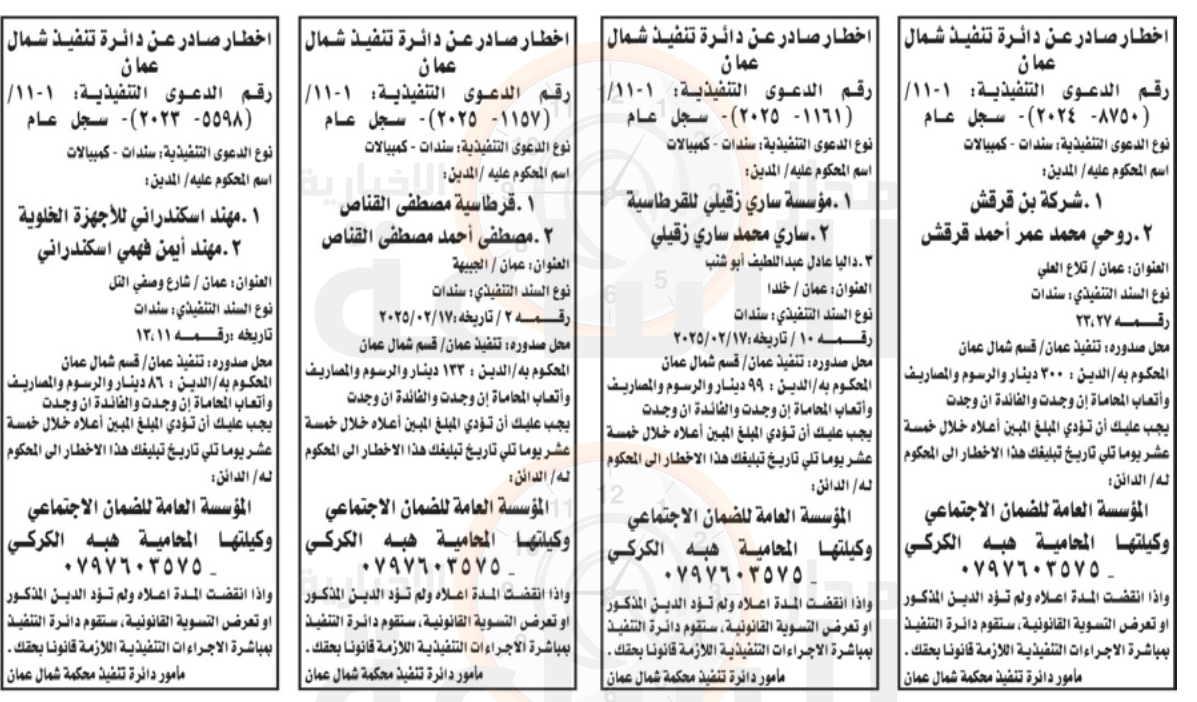 اخطار صادر عن دائرة تنفيذ شمال
عمان
رقم الدعوى التنفيذية: ١-١١/
(٨٧٥٠- ٢٠٢٤)- سجل عام
نوع الدعوى التنفيذية: سندات - كمبيالات
اسم المحكوم عليه/ المدين:
١.شركة بن قرقش
٢.روحي محمد عمر أحمد قرقش
العنوان: عمان / تلاع العلي
نوع السند التنفيذي: سندات
رقـــمـــه ٢٣،٢٧
محل صدوره: تنفيذ عمان/ قسم شمال عمان
المحكوم به/الدين : ٣٠٠ دينار والرسوم والمصاريف
وأتعاب المحاماة إن وجدت والفائدة ان وجدت
يجب عليك أن تؤدي المبلغ المبين أعلاه خلال خمسة
عشر يوما تلي تاريخ تبليغك هذا الاخطار الى المحكوم
له/ الدائن:
المؤسسة العامة للضمان الاجتماعي
وكيلتها المحامية هبه الكركي
_ ٠٧٩٧٦٠٣٥٧٥
واذا انقضت المدة اعلاه ولم تؤد الدين المذكور
او تعرض التسوية القانونية، ستقوم دائرة التنفيذ
بمباشرة الاجراءات التنفيذية اللازمة قانونا بحقك .
مأمور دائرة تنفيذ محكمة شمال عمان
اخطار صادر عن دائرة تنفيذ شمال
عمان
رقم الدعوى التنفيذية: ١-١١/
(١١٦١- ٢٠٢٥)- سجل عام
نوع الدعوى التنفيذية: سندات - كمبيالات
اسم المحكوم عليه/ المدين:
١.مؤسسة ساري زقيلي للقرطاسية
٢.ساري محمد ساري زقيلي
٣.داليا عادل عبداللطيف أبو شنب
العنوان: عمان / خلدا
نوع السند التنفيذي: سندات
رقـــمـــه ١٠ / تاريخه:٢٠٢٥/٠٢/١٧
محل صدوره: تنفيذ عمان/ قسم شمال عمان
المحكوم به/الدين : ٩٩ دينار والرسوم والمصاريف
وأتعاب المحاماة إن وجدت والفائدة ان وجدت
يجب عليك أن تؤدي المبلغ المبين أعلاه خلال خمسة
عشر يوما تلي تاريخ تبليغك هذا الاخطار الى المحكوم
له/ الدائن:
المؤسسة العامة للضمان الاجتماعي
وكيلتها المحامية هبه الكركي
_ ٠٧٩٧٦٠٣٥٧٥
واذا انقضت المدة اعلاه ولم تؤد الدين المذكور
او تعرض التسوية القانونية، ستقوم دائرة التنفيذ
بمباشرة الاجراءات التنفيذية اللازمة قانونا بحقك .
مأمور دائرة تنفيذ محكمة شمال عمان
اخطار صادر عن دائرة تنفيذ شمال
عمان
رقم الدعوى التنفيذية: ١-١١/
(١١٥٧- ٢٠٢٥)- سجل عام
نوع الدعوى التنفيذية: سندات - كمبيالات
اسم المحكوم عليه /المدين:
١.قرطاسية مصطفى القناص
٢.مصطفى أحمد مصطفى القناص
العنوان: عمان / الجبيهة
نوع السند التنفيذي: سندات
رقـــمـــه ٢ / تاريخه:٢٠٢٥/٠٢/١٧
محل صدوره: تنفيذ عمان/ قسم شمال عمان
المحكوم به/الدين : ١٣٣ دينار والرسوم والمصاريف
وأتعاب المحاماة إن وجدت والفائدة ان وجدت
يجب عليك أن تؤدي المبلغ المبين أعلاه خلال خمسة
عشر يوما تلي تاريخ تبليغك هذا الاخطار الى المحكوم
له/ الدائن:
المؤسسة العامة للضمان الاجتماعي
وكيلتها المحامية هبه الكركي
_ ٠٧٩٧٦٠٣٥٧٥
واذا انقضت المدة اعلاه ولم تؤد الدين المذكور
او تعرض التسوية القانونية، ستقوم دائرة التنفيذ
بمباشرة الاجراءات التنفيذية اللازمة قانونا بحقك .
مأمور دائرة تنفيذ محكمة شمال عمان
اخطار صادر عن دائرة تنفيذ شمال
عمان
رقم الدعوى التنفيذية: ١-١١/
(٥٥٩٨- ٢٠٢٣)- سجل عام
نوع الدعوى التنفيذية: سندات - كمبيالات
اسم المحكوم عليه/ المدين:
١.مهند اسكندراني للأجهزة الخلوية
٢.مهند أيمن فهمي اسكندراني
العنوان: عمان / شارع وصفي التل
نوع السند التنفيذي: سندات
تاريخه :رقـــمـــه ١٣،١١
محل صدوره: تنفيذ عمان/ قسم شمال عمان
المحكوم به/الدين : ٨٦ دينار والرسوم والمصاريف
وأتعاب المحاماة إن وجدت والفائدة ان وجدت
يجب عليك أن تؤدي المبلغ المبين أعلاه خلال خمسة
عشر يوما تلي تاريخ تبليغك هذا الاخطار الى المحكوم
له/ الدائن:
المؤسسة العامة للضمان الاجتماعي
وكيلتها المحامية هبه الكركي
_ ٠٧٩٧٦٠٣٥٧٥
واذا انقضت المدة اعلاه ولم تؤد الدين المذكور
او تعرض التسوية القانونية، ستقوم دائرة التنفيذ
بمباشرة الاجراءات التنفيذية اللازمة قانونا بحقك .
مأمور دائرة تنفيذ محكمة شمال عمان